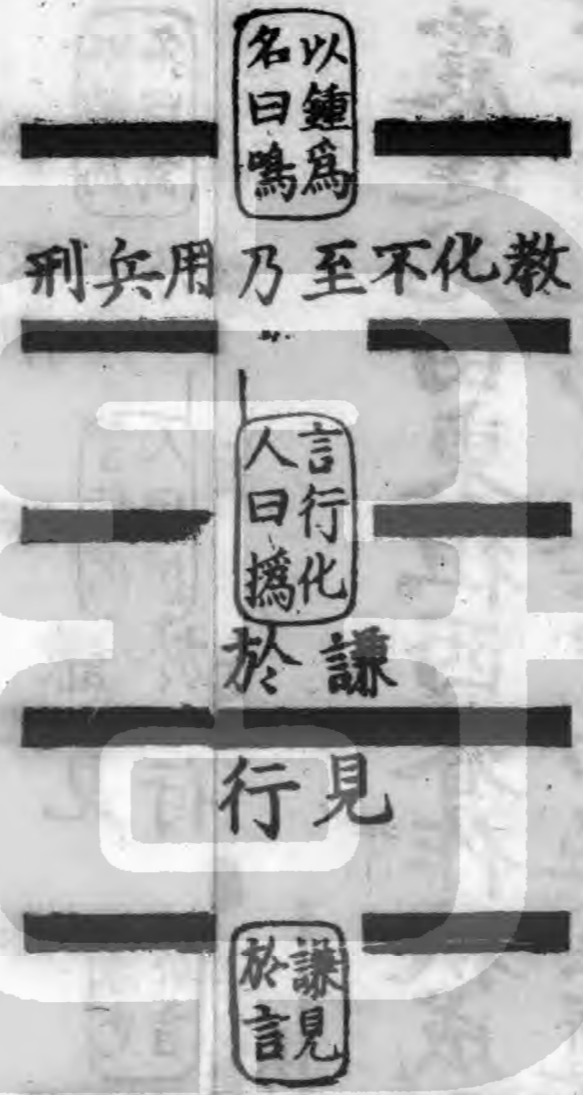 以鍾爲
名曰鳴
教化不至乃用兵刑
言行化
人曰撝
謙於
見行
謙見
於言